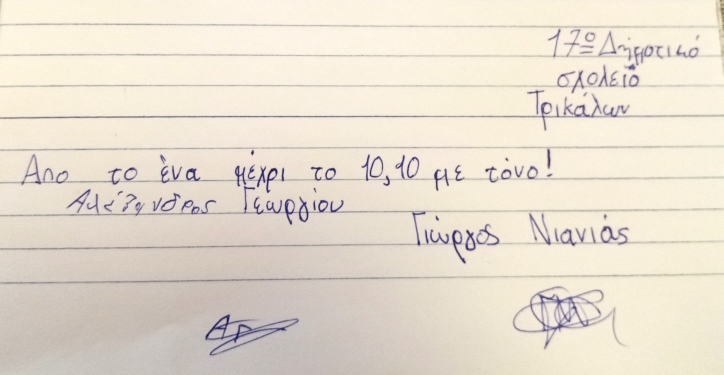 17ο Δημοτικό
σχολείο
Τρικάλων
Απο το ένα μέχρι το 10, 10 με τόνο!
Αλέξανδρος Γεωργίου
Γιώργος Νιανιάς
ΑΓ